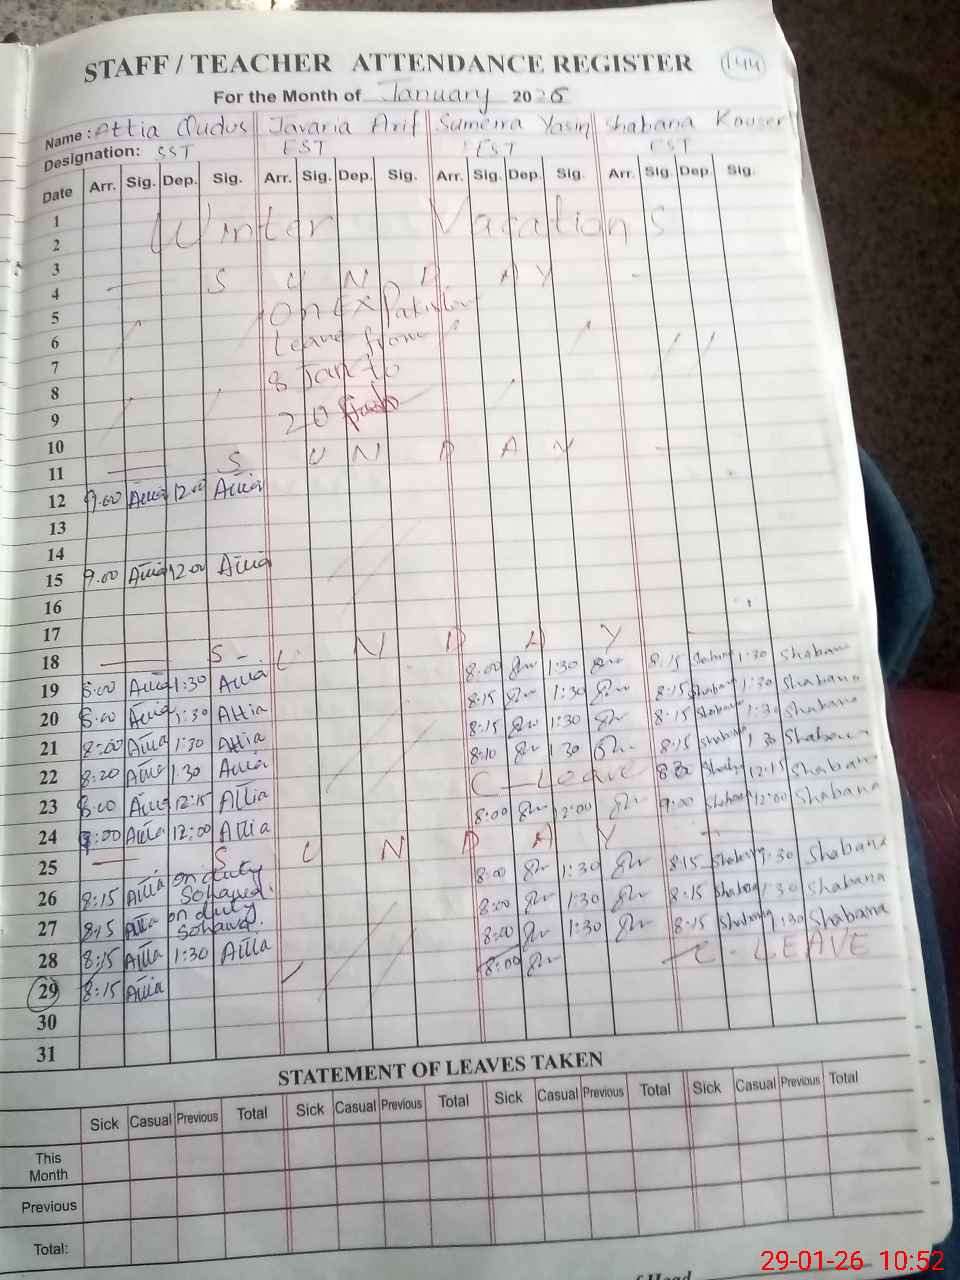 STAFF / TEACHER ATTENDANCE REGISTER 144
For the Month of January 2026
Name: Attia Qudus Javaria Arif Sumerra Yasin Shabana Kouser
Designation: SST EST EST EST
Date Arr. Sig. Dep. Sig. Arr. Sig. Dep. Sig. Arr. Sig. Dep. Sig. Arr. Sig. Dep. Sig.
1
Winter Vacations
2
3
4 S U N D A Y
5 On Ex Pakistan
6 Leave from
7 8 Jan to
8 20
9
10
11 S U N D A Y
12 9.00 Attia 12.00 Attia
13
14
15 9.00 Attia 12.00 Attia
16
17
18 S U N D A Y
19 8:00 Attia 1:30 Attia 8:00 1:30 8:15 Shabana 1:30 Shabana
20 8:00 Attia 1:30 Attia 8:15 1:30 8:15 Shabana 1:30 Shabana
21 8:00 Attia 1:30 Attia 8:15 1:30 8:15 Shabana 1:30 Shabana
22 8:20 Attia 1:30 Attia 8:10 1 30 8:15 Shabana 1 30 Shabana
23 8:00 Attia 12:15 Attia C-Leave Shabana 12:15 Shabana
24 9:00 Attia 12:00 Attia 8:00 12:00 9:00 Shabana 12:00 Shabana
25 S U N D A Y
26 8:15 Attia on duty Sohawa. 8:00 1:30 8:15 Shabana 1:30 Shabana
27 8:15 Attia on duty Sohawa. 8:00 1:30 8:15 Shabana 1:30 Shabana
28 8:15 Attia 1:30 Attia 8:00 1:30 8:15 Shabana 1:30 Shabana
29 8:15 Attia 8:00 C-LEAVE
30
31
STATEMENT OF LEAVES TAKEN
Sick Casual Previous Total Sick Casual Previous Total Sick Casual Previous Total Sick Casual Previous Total
This
Month
Previous
Total:
f Head
29-01-26 10:52